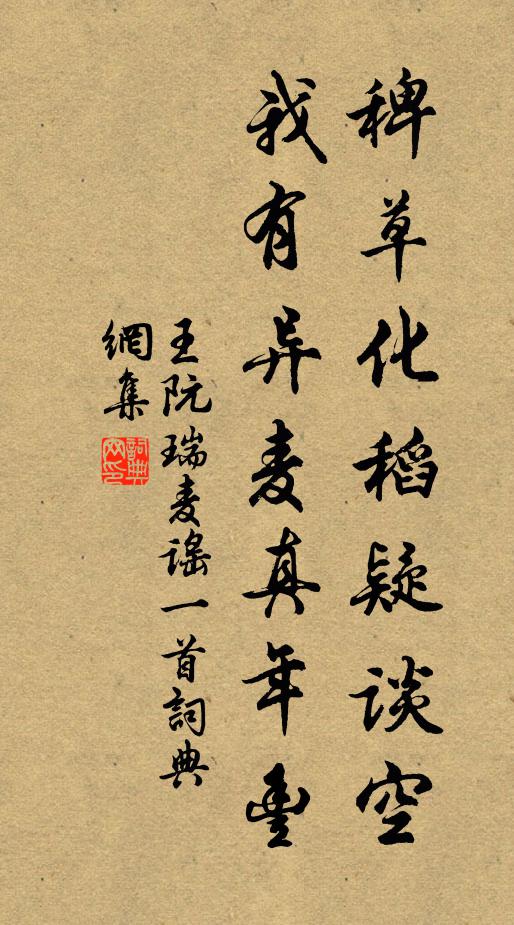 稗草化稻疑谈空
我有异麦真年豊
王阮瑞麦谣一首詞典
網集
詞典網印